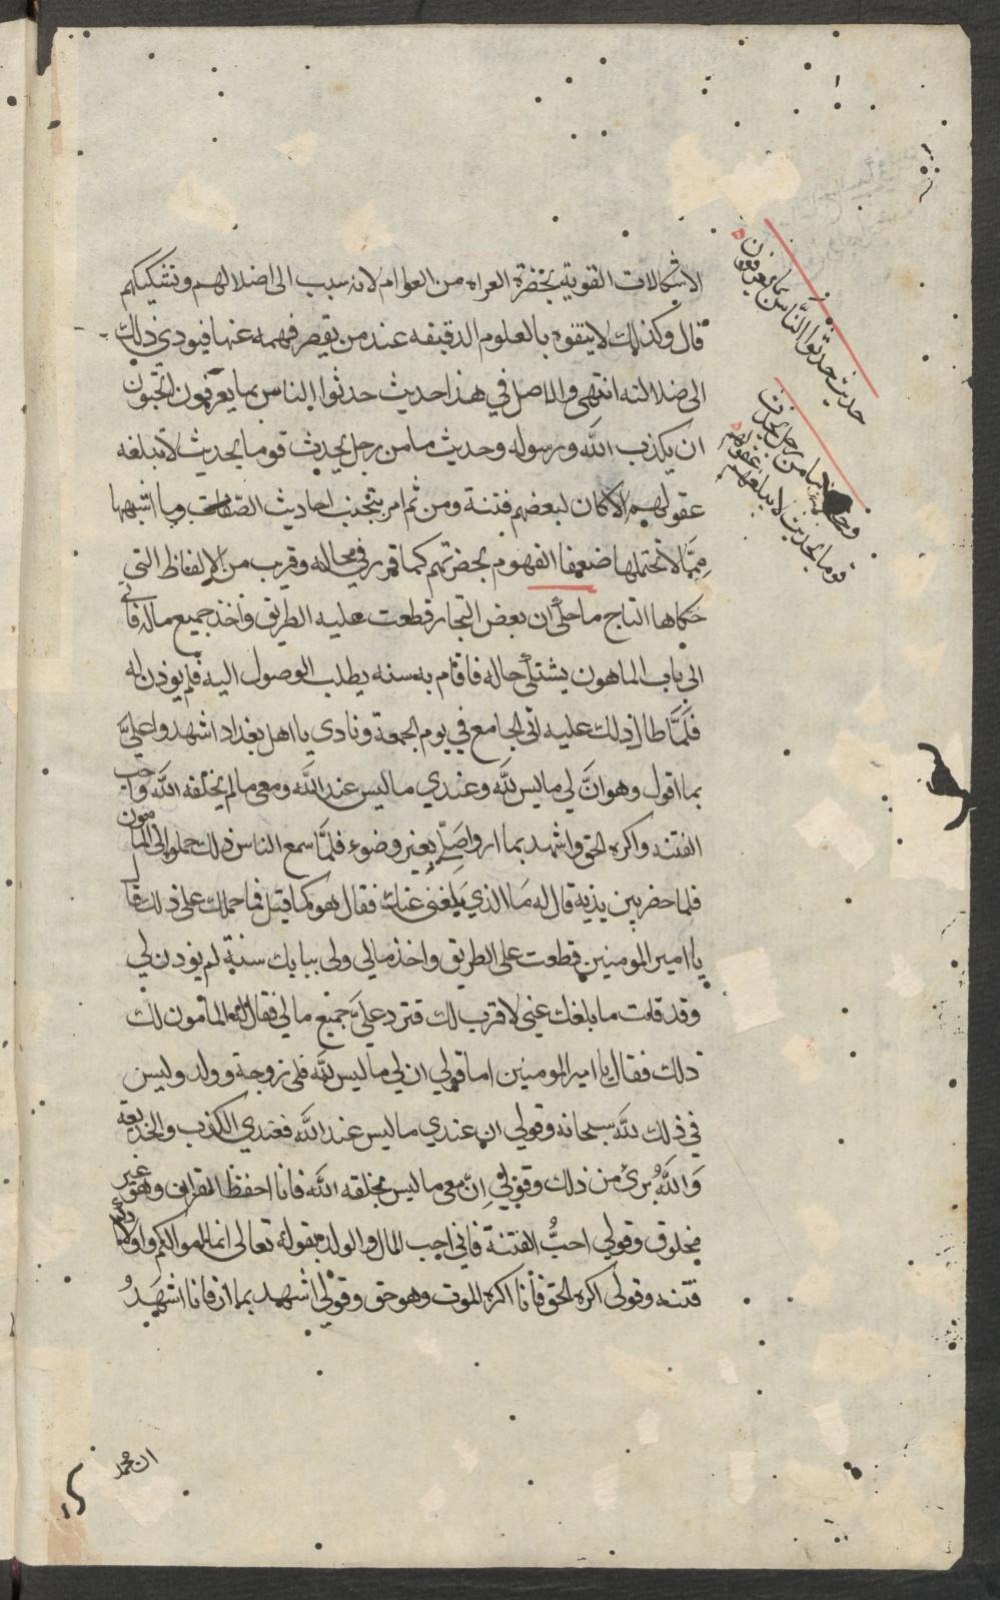 الاشكالات القوية بحضرة العراه من العوام لانه سبب الى اضلالهم وتشكيكهم
قال وكذلك لا يتفوه بالعلوم الدقيقه عند من يقصر فهمه عنها فيودي ذلك
الى ضلالته انتهى والاصل في هذا حديث حدثوا الناس بما يعرفون اتحبون
ان يكذب الله ورسوله وحديث ما من رجل يحدث قوما بحديث لا تبلغه
عقولهم الا كان لبعضهم فتنة ومن ثم امر بتجنب احاديث الصفات وما اشبهها
مما لا تحتملها ضعفا الفهوم بحضرتهم كما قرر في محاله وقريب من الالفاظ التي
حكاها التاج ما حكي ان بعض التجار قطعت عليه الطريق واخذ جميع ماله فاتى
الى باب المامون يشتكي حاله فاقام به سنه يطلب الوصول اليه فلم يوذن له
فلما طال ذلك عليه اتى الجامع في يوم الجمعة ونادى يا اهل بغداد اشهدوا علي
بما اقول وهو ان لي ما ليس لله وعندي ما ليس عند الله ومعي ما لم يخلقه الله واحب
الفتنه واكره الحق واشهد بما لم ار واصلي بغير وضوء فلما سمع الناس ذلك حملوه الى المامون
فلما حضر بين يديه قال له ما الذي بلغني عنك فقال هو كما قيل فما حملك على ذلك قا
يا امير المومنين قطعت علي الطريق واخذ مالي ولى ببابك سنة لم يوذن لي
وقد قلت ما بلغك عني لا قرب لك فترد علي جميع مالي فقال له المامون لك
ذلك فقال يا امير المومنين اما قولي ان لي ما ليس لله فلي زوجة وولد وليس
في ذلك لله سبحانه وقولي ان عندي ما ليس عند الله فعندي الكذب والخديعة
والله بريء من ذلك وقولي ان معي ما ليس بخلقه الله فانا احفظ القران وهو غير
مخلوق وقولي احب الفتنة فاني احب المال والولد بقوله تعالى انما اموالكم واولادكم
فتنه وقولى اكره الحق فانا اكره الموت وهو حق وقولي اشهد بما ار فانا اشهد
ان محمد
حديث حدثوا الناس بما يعرفون
ما من رجل يحدث
قوما بحديث لا تبلغه عقولهم